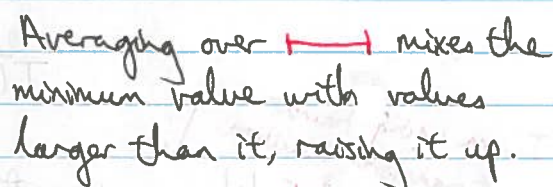 Averaging over mixes the
minimum value with values
larger than it, raising it up.